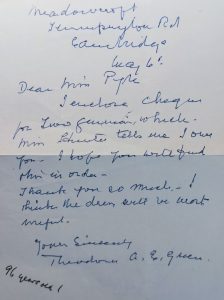 Meadowcroft
Trumpington Rd
Cambridge
May 6th
Dear Miss Pyke
I enclose cheque
for Two Guineas, which
Miss tells me I owe
you. I hope you will find
this in order -
Thank you so much - I
think the will be most
useful.
Yours Sincerely
Theodora A. E. Green.
96